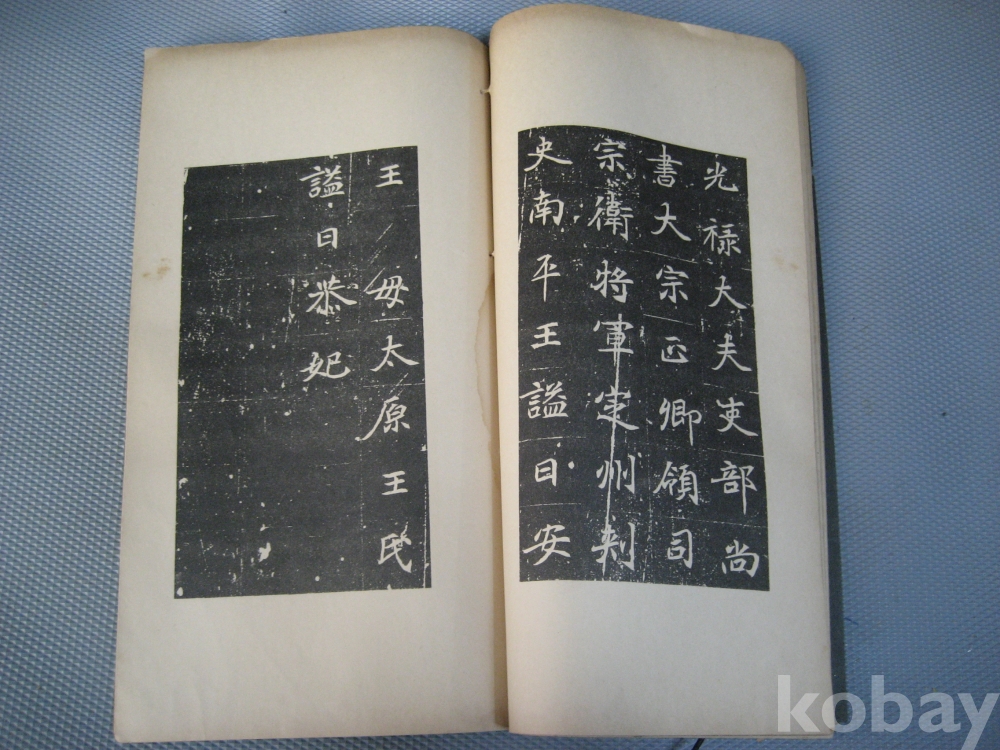 光禄大夫吏部尚
書大宗正卿領司
宗衛將軍定州刺
史南平王謚曰安
王母太原王氏
謚曰恭妃
kobay